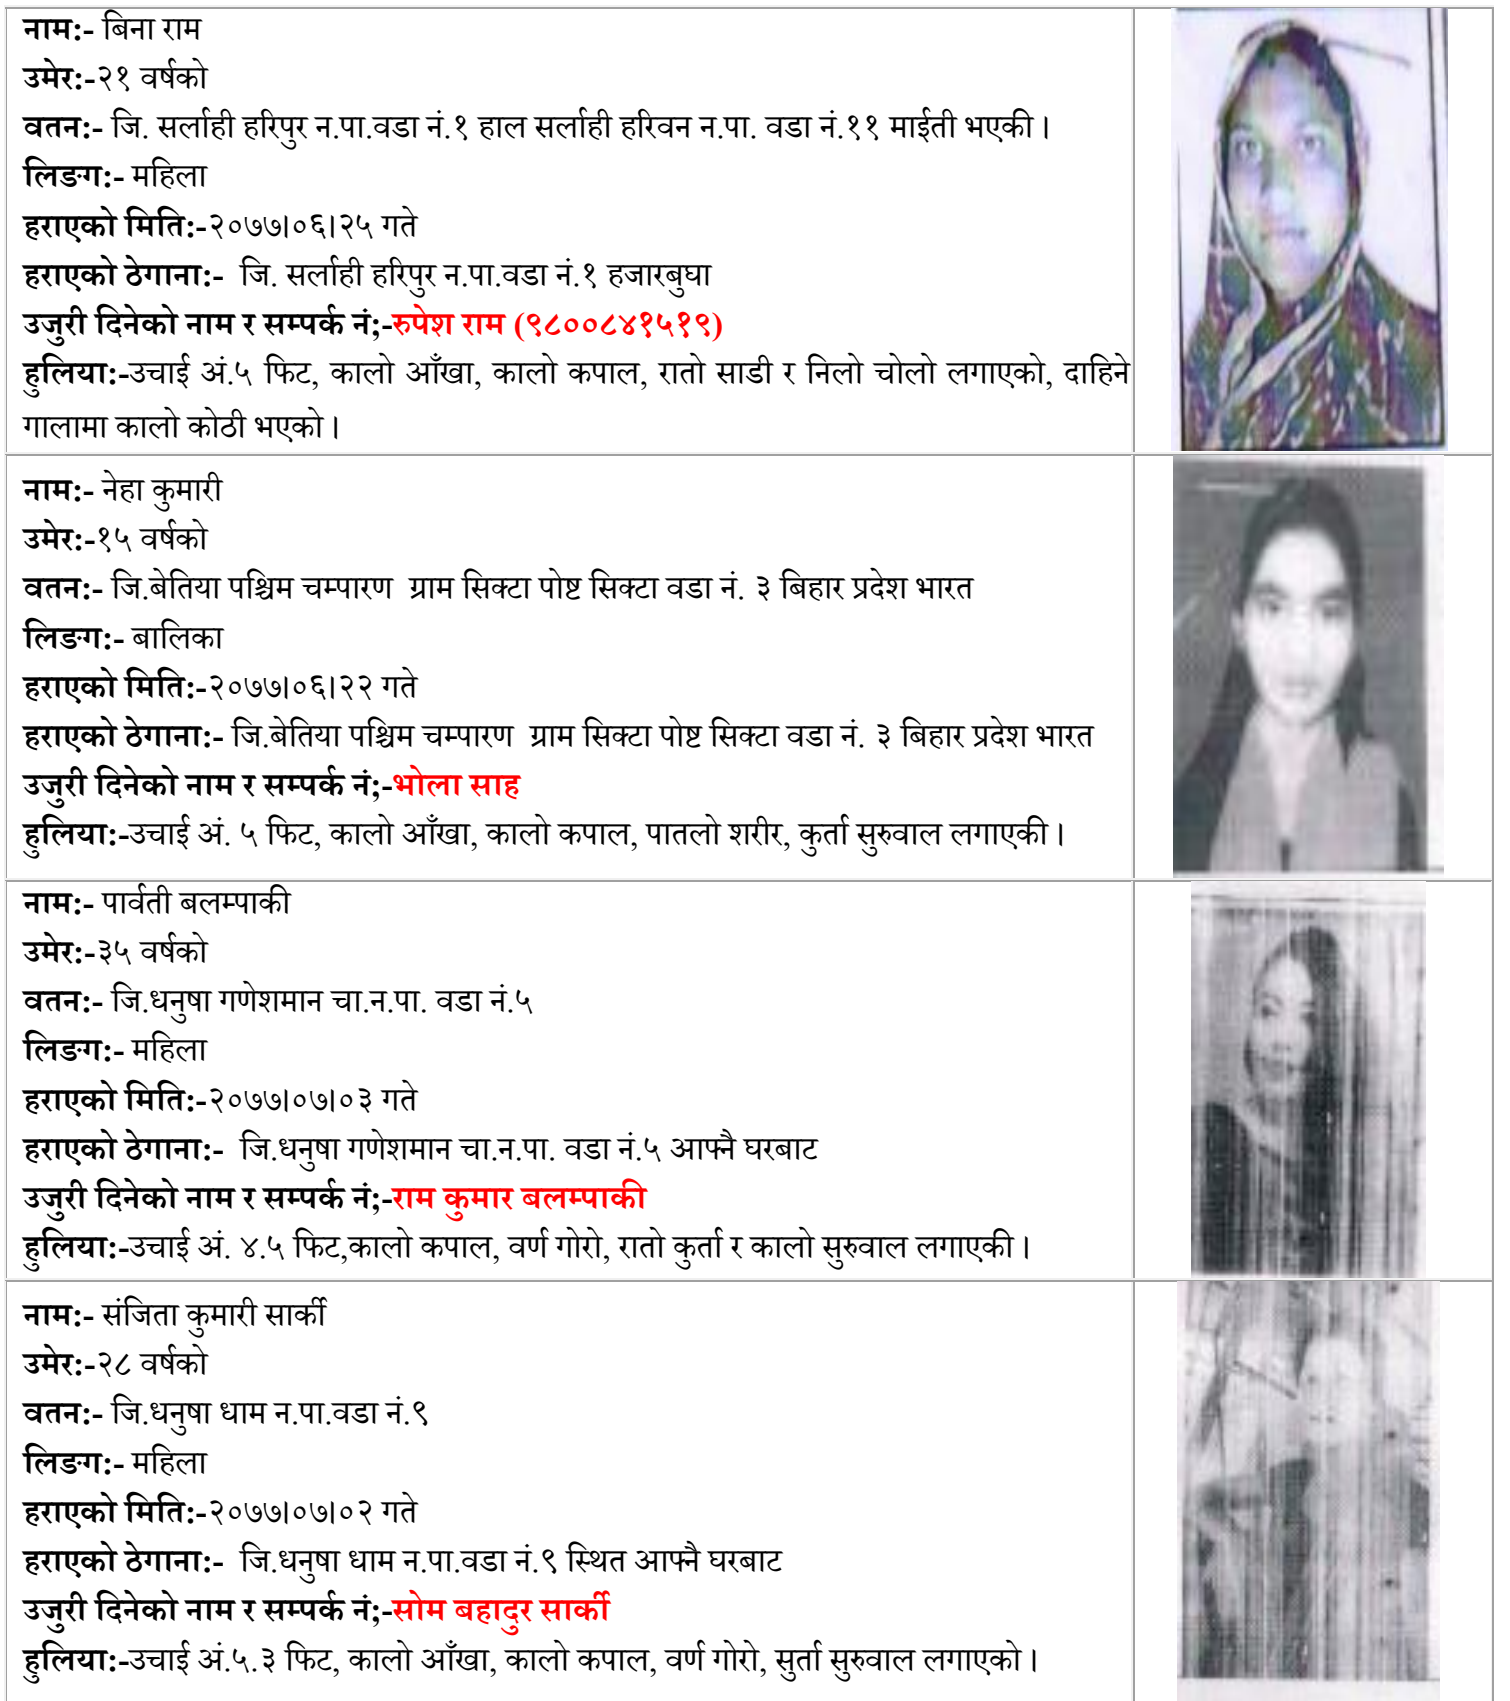 नाम:- बिना राम
उमेर:-२१ वर्षको
वतन:- जि. सर्लाही हरिपुर न.पा.वडा नं.१ हाल सर्लाही हरिवन न.पा. वडा नं.११ माईती भएकी ।
लिङग:- महिला
हराएको मिति:-२०७७।०६।२५ गते
हराएको ठेगाना:- जि. सर्लाही हरिपुर न.पा.वडा नं.१ हजारबुघा
उजुरी दिनेको नाम र सम्पर्क नं;-रुपेश राम (९८००८४१५१९)
हुलिया:-उचाई अं.५ फिट, कालो आँखा, कालो कपाल, रातो साडी र निलो चोलो लगाएको, दाहिने
गालामा कालो कोठी भएको ।
नाम:- नेहा कुमारी
उमेर:-१५ वर्षको
वतन:- जि.बेतिया पश्चिम चम्पारण ग्राम सिक्टा पोष्ट सिक्टा वडा नं. ३ बिहार प्रदेश भारत
लिङग:- बालिका
हराएको मिति:-२०७७।०६।२२ गते
हराएको ठेगाना:- जि.बेतिया पश्चिम चम्पारण ग्राम सिक्टा पोष्ट सिक्टा वडा नं. ३ बिहार प्रदेश भारत
उजुरी दिनेको नाम र सम्पर्क नं;-भोला साह
हुलिया:-उचाई अं. ५ फिट, कालो आँखा, कालो कपाल, पातलो शरीर, कुर्ता सुरुवाल लगाएकी ।
नाम:- पार्वती बलम्पाकी
उमेर:-३५ वर्षको
वतन:- जि.धनुषा गणेशमान चा.न.पा. वडा नं.५
लिङग:- महिला
हराएको मिति:-२०७७।०७।०३ गते
हराएको ठेगाना:- जि.धनुषा गणेशमान चा.न.पा. वडा नं.५ आफ्नै घरबाट
उजुरी दिनेको नाम र सम्पर्क नं;-राम कुमार बलम्पाकी
हुलिया:-उचाई अं. ४.५ फिट,कालो कपाल, वर्ण गोरो, रातो कुर्ता र कालो सुरुवाल लगाएकी ।
नाम:- संजिता कुमारी सार्की
उमेर:-२८ वर्षको
वतन:- जि.धनुषा धाम न.पा.वडा नं.९
लिङग:- महिला
हराएको मिति:-२०७७।०७।०२ गते
हराएको ठेगाना:- जि.धनुषा धाम न.पा.वडा नं.९ स्थित आफ्नै घरबाट
उजुरी दिनेको नाम र सम्पर्क नं;-सोम बहादुर सार्की
हुलिया:-उचाई अं.५.३ फिट, कालो आँखा, कालो कपाल, वर्ण गोरो, सुर्ता सुरुवाल लगाएको ।